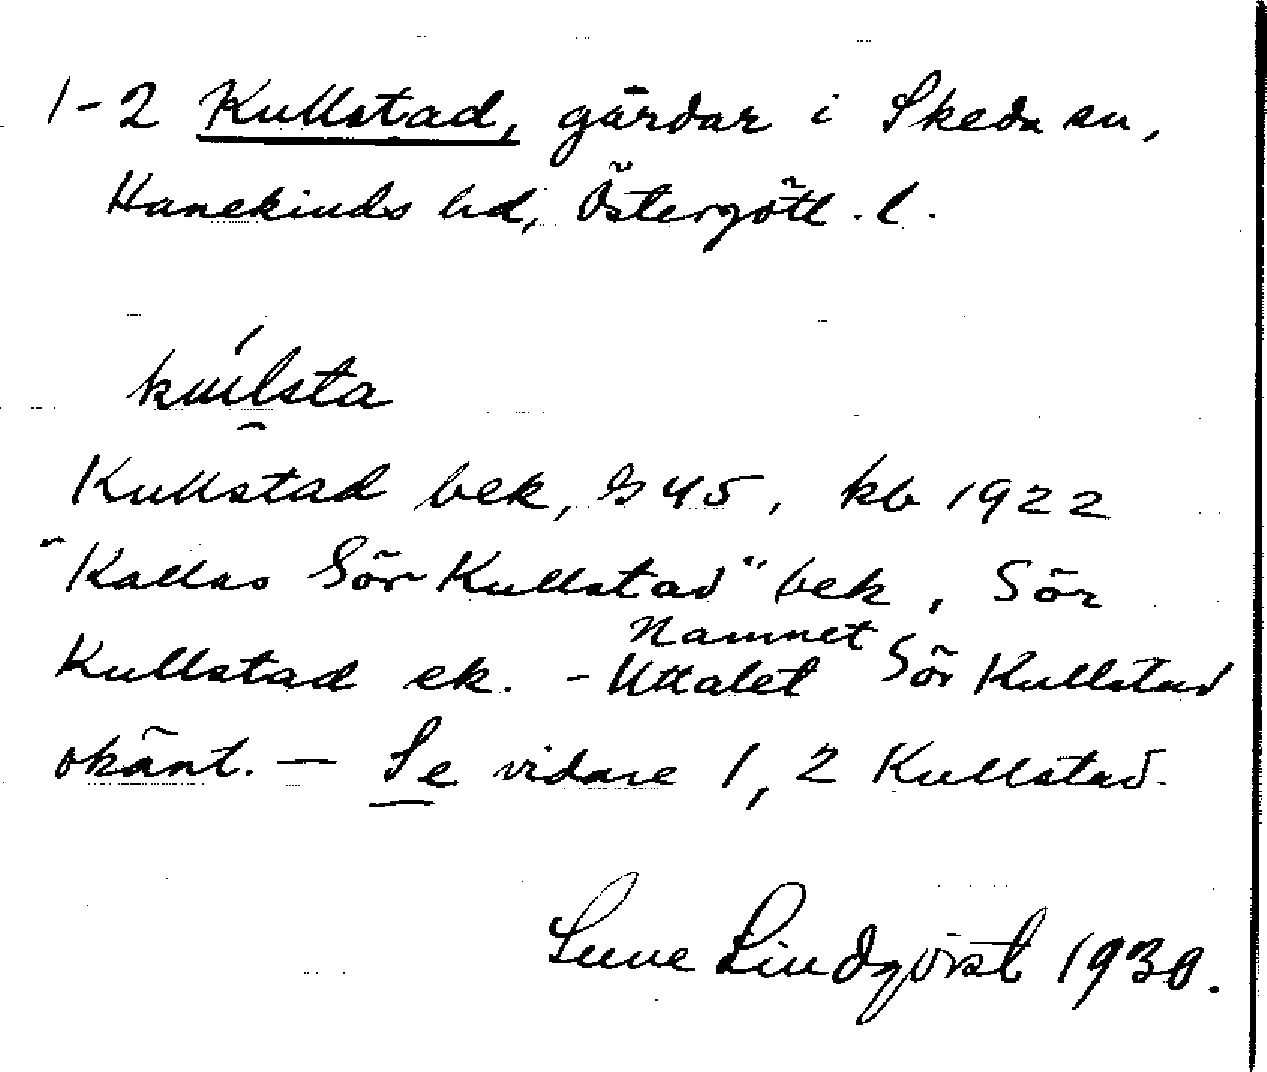 1-2 Kullstad, gårdar i Skeda sn,
Hanekinds hd, Östergötl. l.
kúlsta
Kullstad bek, G45, kb 1922
"Kallas Sör Kullstad" bek, Sör
Namnet
Kullstad ek. - Uttalet Sör Kullstad
okänt. — Se vidare 1, 2 Kullstad.
Sune Lindqvist 1930.